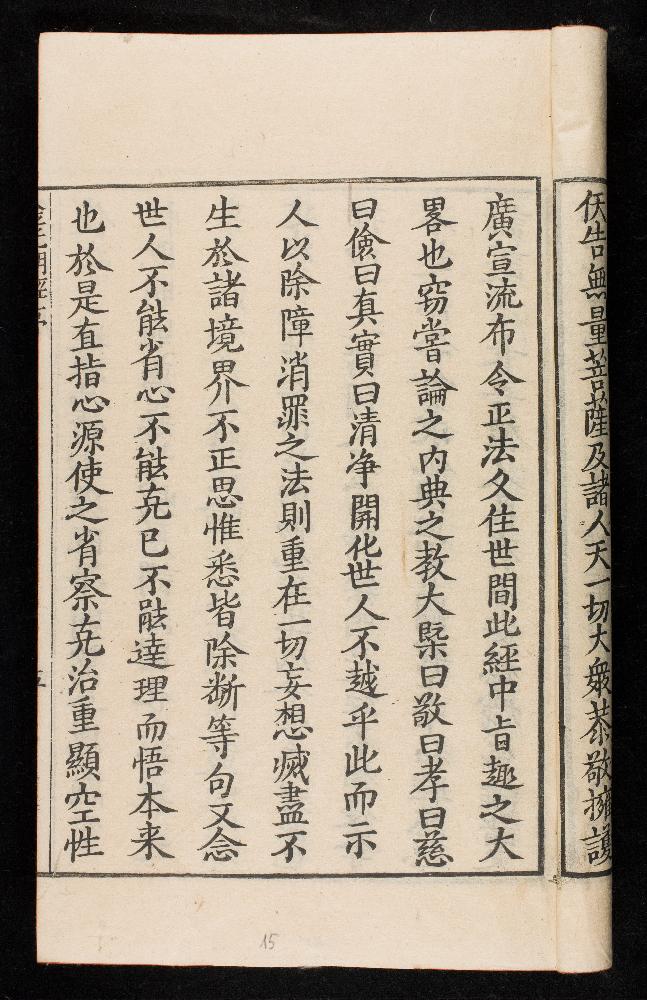 伏告無量菩薩及諸人天一切大衆恭敬擁護
廣宣流布令正法久住世間此經中旨趣之大
畧也窃嘗論之内典之教大槩曰敬曰孝曰慈
曰儉曰真實曰清净開化世人不越乎此而示
人以除障消罪之法則重在一切妄想滅盡不
生於諸境界不正思惟悉皆除断等句又念
世人不能省心不能克已不能達理而悟本来
也於是直指心源使之省察克治重顯空性
五
15